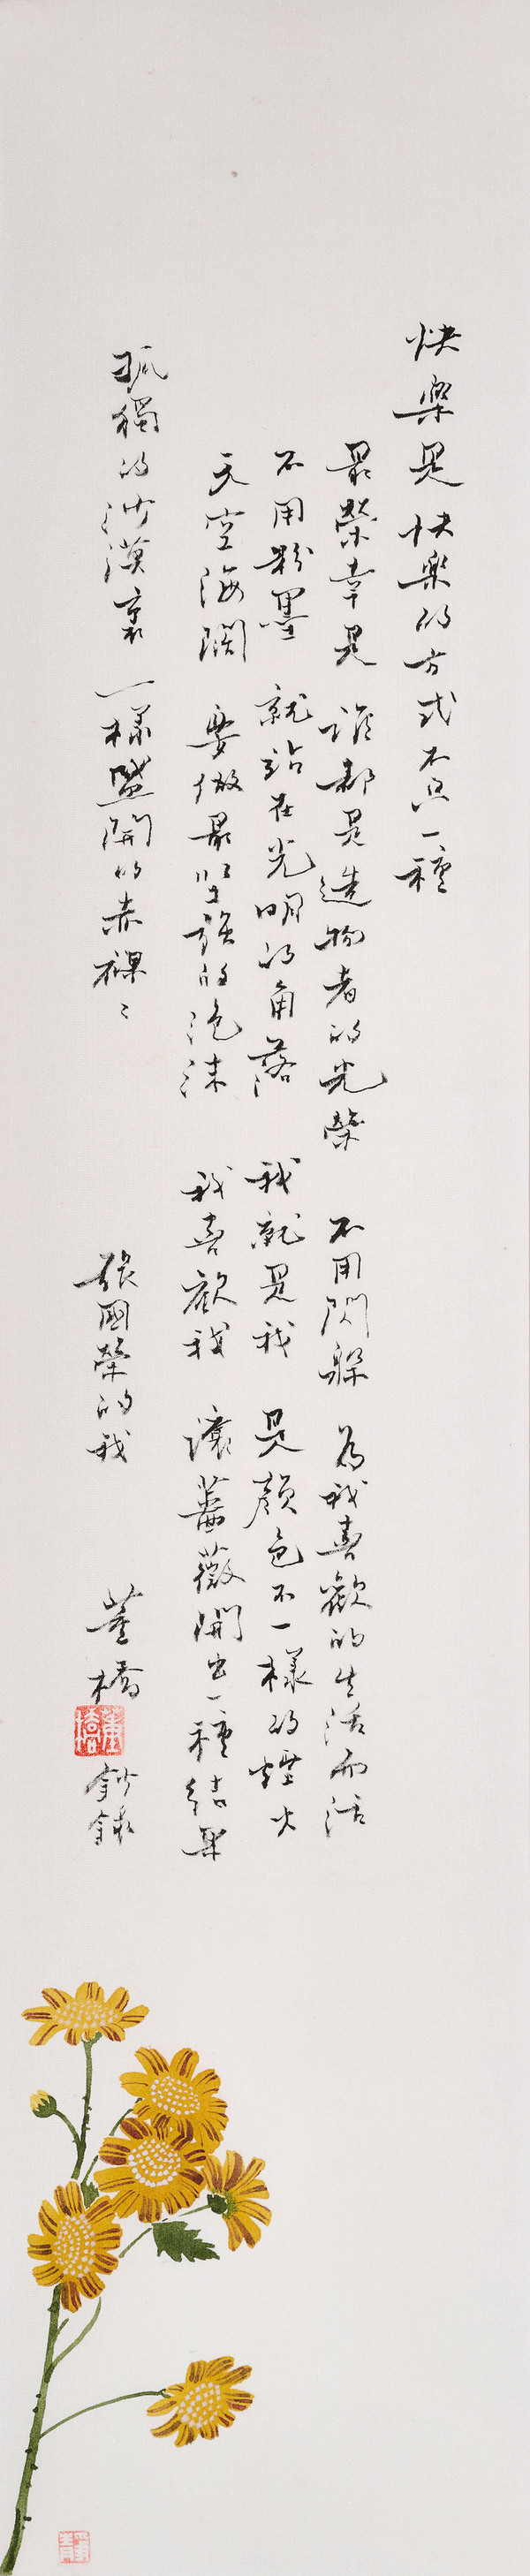 快樂是 快樂的方式不只一種
最榮幸是 誰都是造物者的光榮 不用閃躲 為我喜歡的生活而活
不用粉墨 就站在光明的角落 我就是我 是顏色不一樣的煙火
天空海闊 要做最堅強的泡沫 我喜歡我 讓薔薇開出一種結果
孤獨的沙漠裏 一樣盛開的赤裸〻
張國榮的我 董橋 鈔錄
董橋